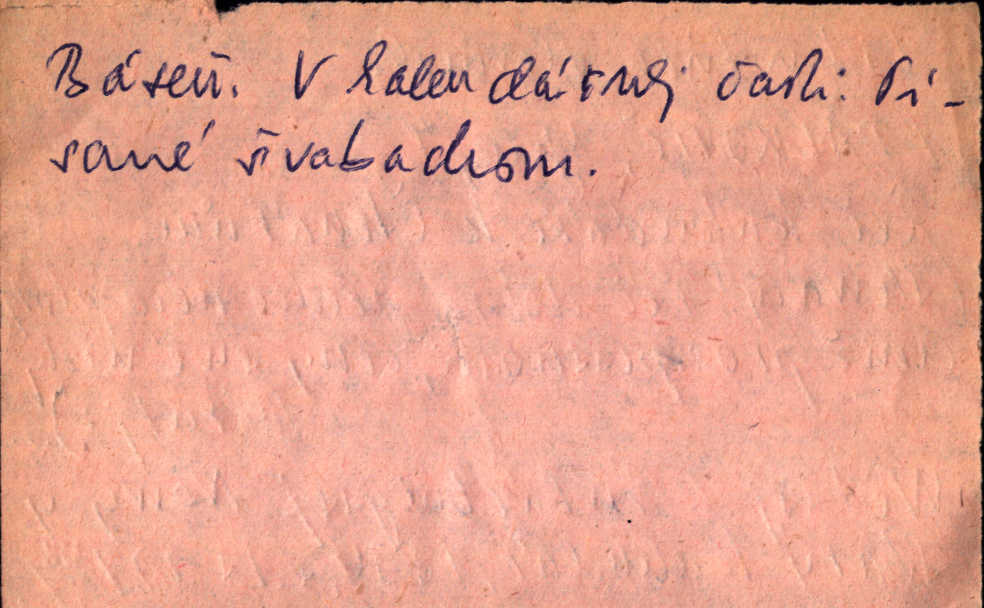 Báseň. V kalendárnej časti: Pí-
sané švabachom.